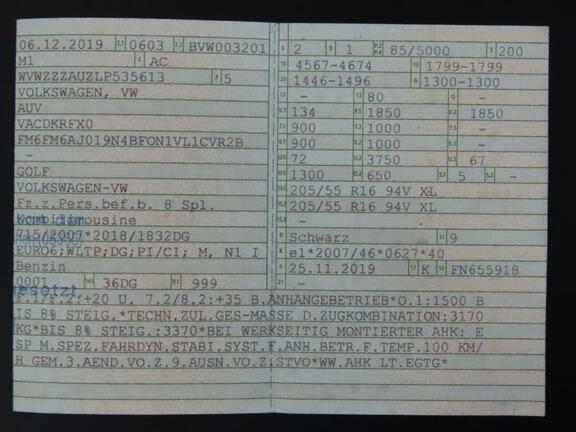 06.12.2019 2.1 0603 2.2 BVW003201
M1 4 AC
WVWZZZAUZLP535613 3 5
VOLKSWAGEN, VW
AUV
VACDKRFX0
FM6FM6AJ019N4BFON1VL1CVR2B
–
GOLF
VOLKSWAGEN-VW
Fz.z.Pers.bef.b. 8 Spl.
Kombilimousine
715/2007*2018/1832DG
EURO6;WLTP;DG;PI/CI; M, N1 I
Benzin
0001 36DG 999
L 2 9 1 P.2 P.4 85/5000 T 200
18 4567-4674 19 1799-1799
20 1446-1496 G 1300-1300
12 – 13 80 Q –
V.7 134 F.1 1850 F.2 1850
7.1 900 7.2 1000 7.3 –
8.1 900 8.2 1000 8.3 –
U.1 72 U.2 3750 U.3 67
O.1 1300 O.2 650 S.1 5 S.2 –
15.1 205/55 R16 94V XL
15.2 205/55 R16 94V XL
15.3 –
R Schwarz 11 9
K e1*2007/46*0627*40
6 25.11.2019 17 K 16 FN655918
21 –
F.1/F.2:+20 U. 7.2/8.2:+35 B.ANHAENGEBETRIEB*O.1:1500 B
IS 8% STEIG.*TECHN.ZUL.GES-MASSE D.ZUGKOMBINATION:3170
KG*BIS 8% STEIG.:3370*BEI WERKSEITIG MONTIERTER AHK: E
SP M.SPEZ.FAHRDYN.STABI.SYST.F.ANH.BETR.F.TEMP.100 KM/
H GEM.3.AEND.VO.Z.9.AUSN.VO.Z.STVO*WW.AHK LT.EGTG*